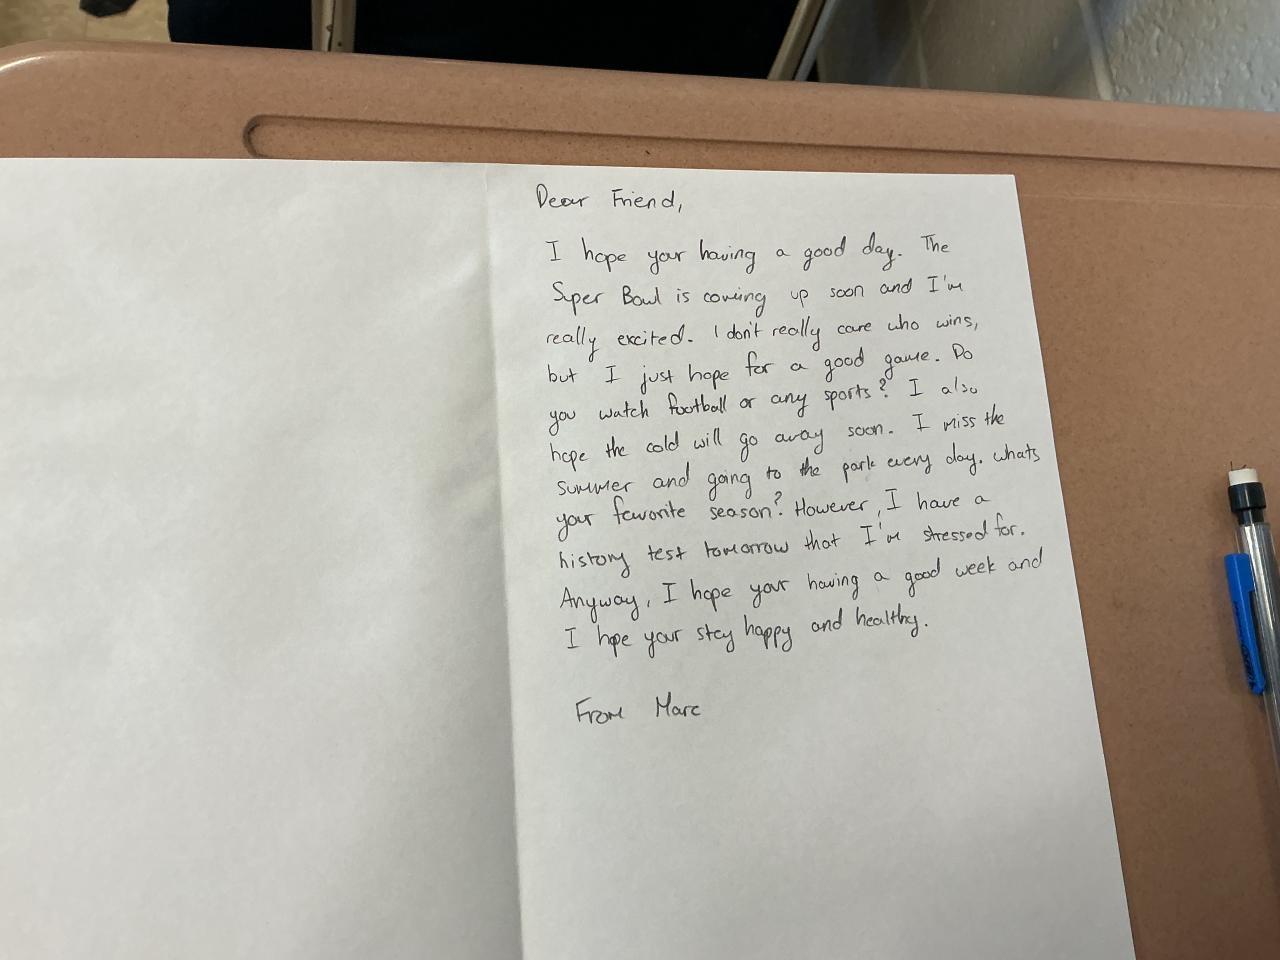 Dear Friend,
I hope your having a good day. The
Super Bowl is coming up soon and I'm
really excited. I don't really care who wins,
but I just hope for a good game. Do
you watch football or any sports? I also
hope the cold will go away soon. I miss the
summer and going to the park every day. whats
your favorite season? However, I have a
history test tomorrow that I'm stressed for.
Anyway, I hope your having a good week and
I hope your stay happy and healthy.
From Marc